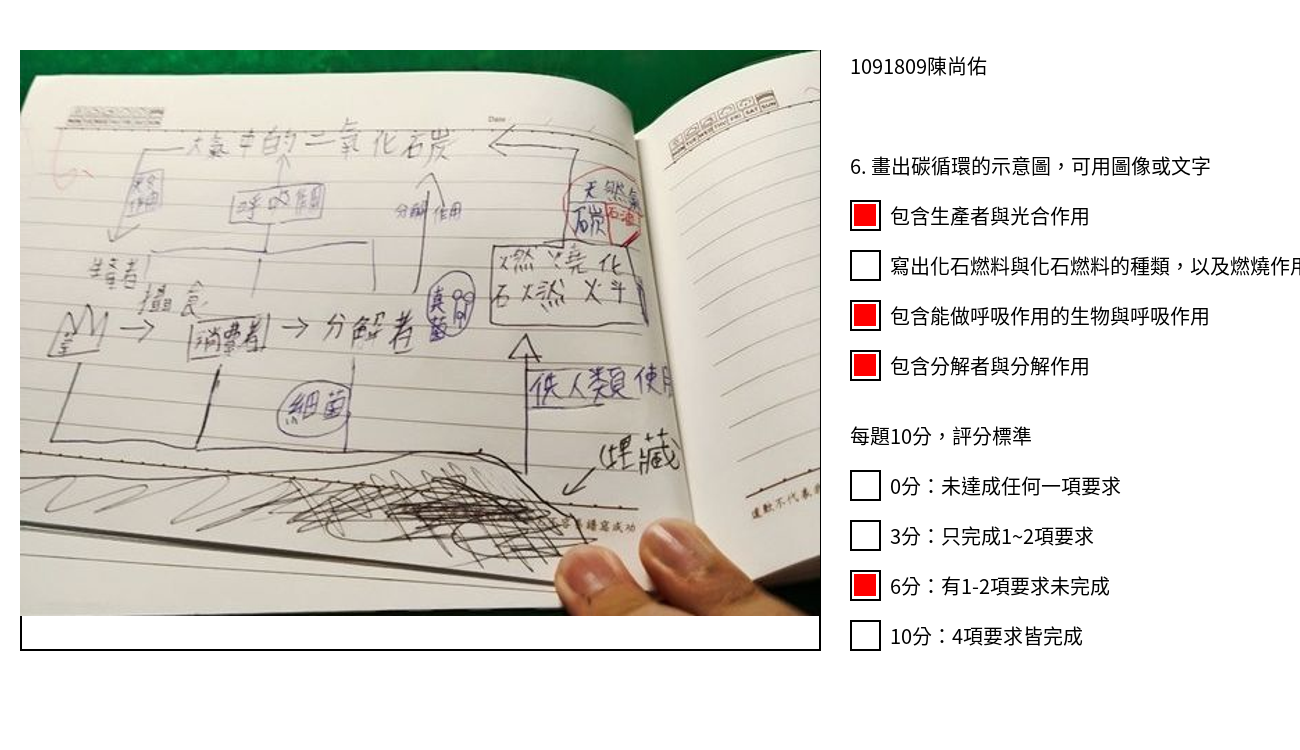 Date
大氣中的二氧化碳
光合作用
呼吸作用
分解作用
天然氣
石炭
石油
燃燒化
石燃料
生產者
攝食
草
消費者
分解者
真菌
細菌
供人類使用
埋藏
1091809陳尚佑
6. 畫出碳循環的示意圖，可用圖像或文字
包含生產者與光合作用
寫出化石燃料與化石燃料的種類，以及燃燒作用
包含能做呼吸作用的生物與呼吸作用
包含分解者與分解作用
每題10分，評分標準
0分：未達成任何一項要求
3分：只完成1~2項要求
6分：有1-2項要求未完成
10分：4項要求皆完成